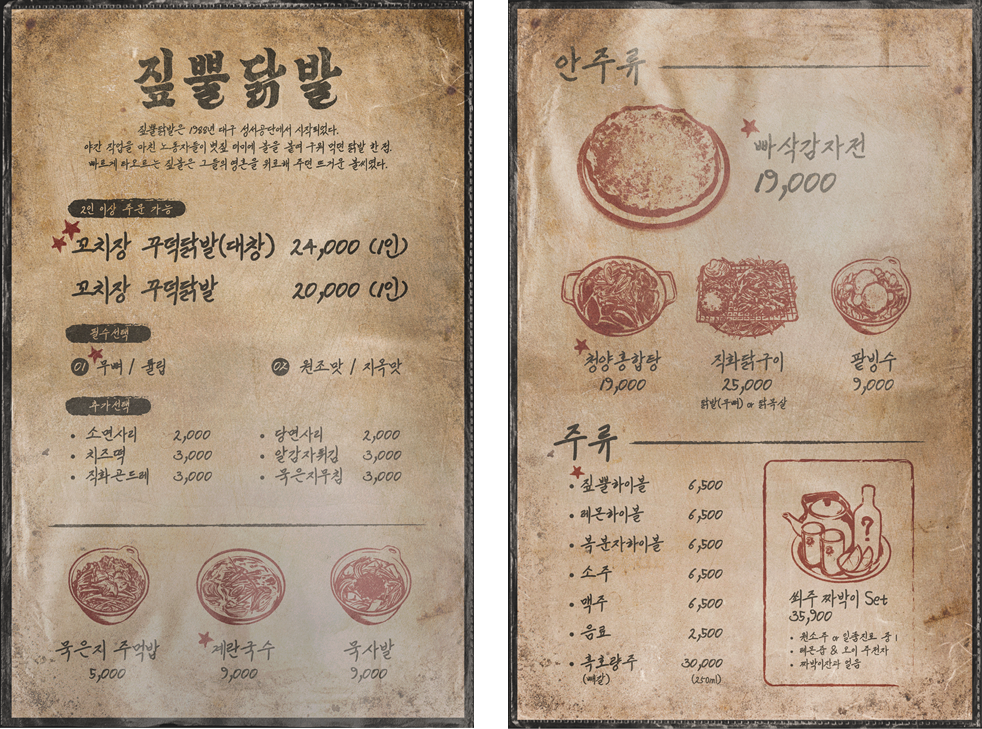 짚뿔닭발
짚뿔닭발은 1988년 대구 성서공단에서 시작되었다.
야간 작업을 마친 노동자들이 볏짚 더미에 불을 붙여 구워 먹던 닭발 한 점.
빠르게 타오르는 짚불은 그들의 영혼을 위로해 주던 뜨거운 불씨였다.
2인 이상 주문 가능
꼬치장 꾸덕닭발(대창) 24,000 (1인)
꼬치장 꾸덕닭발 20,000 (1인)
필수선택
01 무뼈 / 튤립
02 원조맛 / 지옥맛
추가선택
• 소면사리 2,000
• 당면사리 2,000
• 치즈떡 3,000
• 알감자튀김 3,000
• 직화곤드레 3,000
• 묵은지무침 3,000
묵은지 주먹밥
5,000
계란국수
9,000
묵사발
9,000
안주류
빠삭감자전
19,000
청양홍합탕
19,000
직화닭구이
25,000
닭발(무뼈) or 닭목살
팥빙수
9,000
주류
• 짚뿔하이볼 6,500
• 레몬하이볼 6,500
• 복분자하이볼 6,500
• 소주 6,500
• 맥주 6,500
• 음료 2,500
• 흑호랑주 30,000
(빼갈) (250ml)
쐬주 짜박이 Set
35,900
• 원소주 or 일품진로 중 1
• 레몬 & 오이 주전자
• 짜박이잔과 얼음